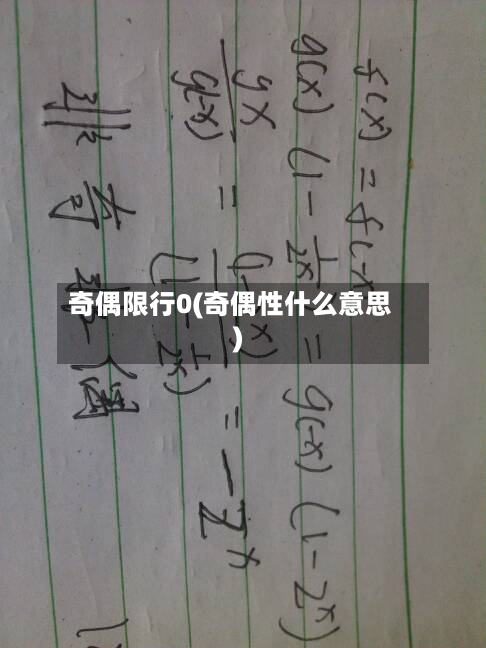 奇偶限行0(奇偶性什么意思
)
f(x) = f(-x
g(x) (1 - 1/2^x = g(-x) (1-2^x)
gx/g(-x) = (1- x)/(1 - 1/2^x) = -2^x
非奇非偶